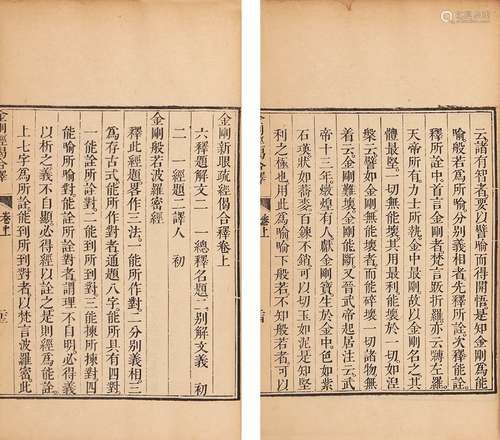 金剛新眼疏經偈合釋卷上
六釋題解文二 一總釋名題 二別解文義 初
二 一經題 二譯人 初
金剛般若波羅密經
釋此經題畧各作三法。一能所作對。二分別義相。三
為存古式能所作對者通題八字能所具有四對
一能詮所詮對。二能到所到對。三能揀所揀對四
能喻所喻對。能詮所詮對者謂理不自明必得義
以析之義不自顯必得經以詮之是則經為能詮。
上七字為所詮能到所到對者以梵言波羅蜜此
金剛經偈合釋 卷上
云諸有智者要以喻得開悟是知金剛為能
喻般若為所喻分別義相者先釋所詮次釋能詮。
釋所詮中首言金剛者梵言跋折羅亦云嚩左羅。
天帝所有力士所執金中最剛故以金剛名之其
體最堅。一切無能壞其用最利能壞於一切如涅
槃云譬如金剛無能壞者而能碎壞一切諸物無
着云金剛難壞金剛能斷又晉武帝起居注云。武
帝十三年燉煌有人獻金剛寶生於金中色如紫
石瑛狀如蕎麥百鍊不銷可以切玉如泥是知堅
利之極也用此為喻喻下般若不知般若者可以
金剛經偈合釋 卷上